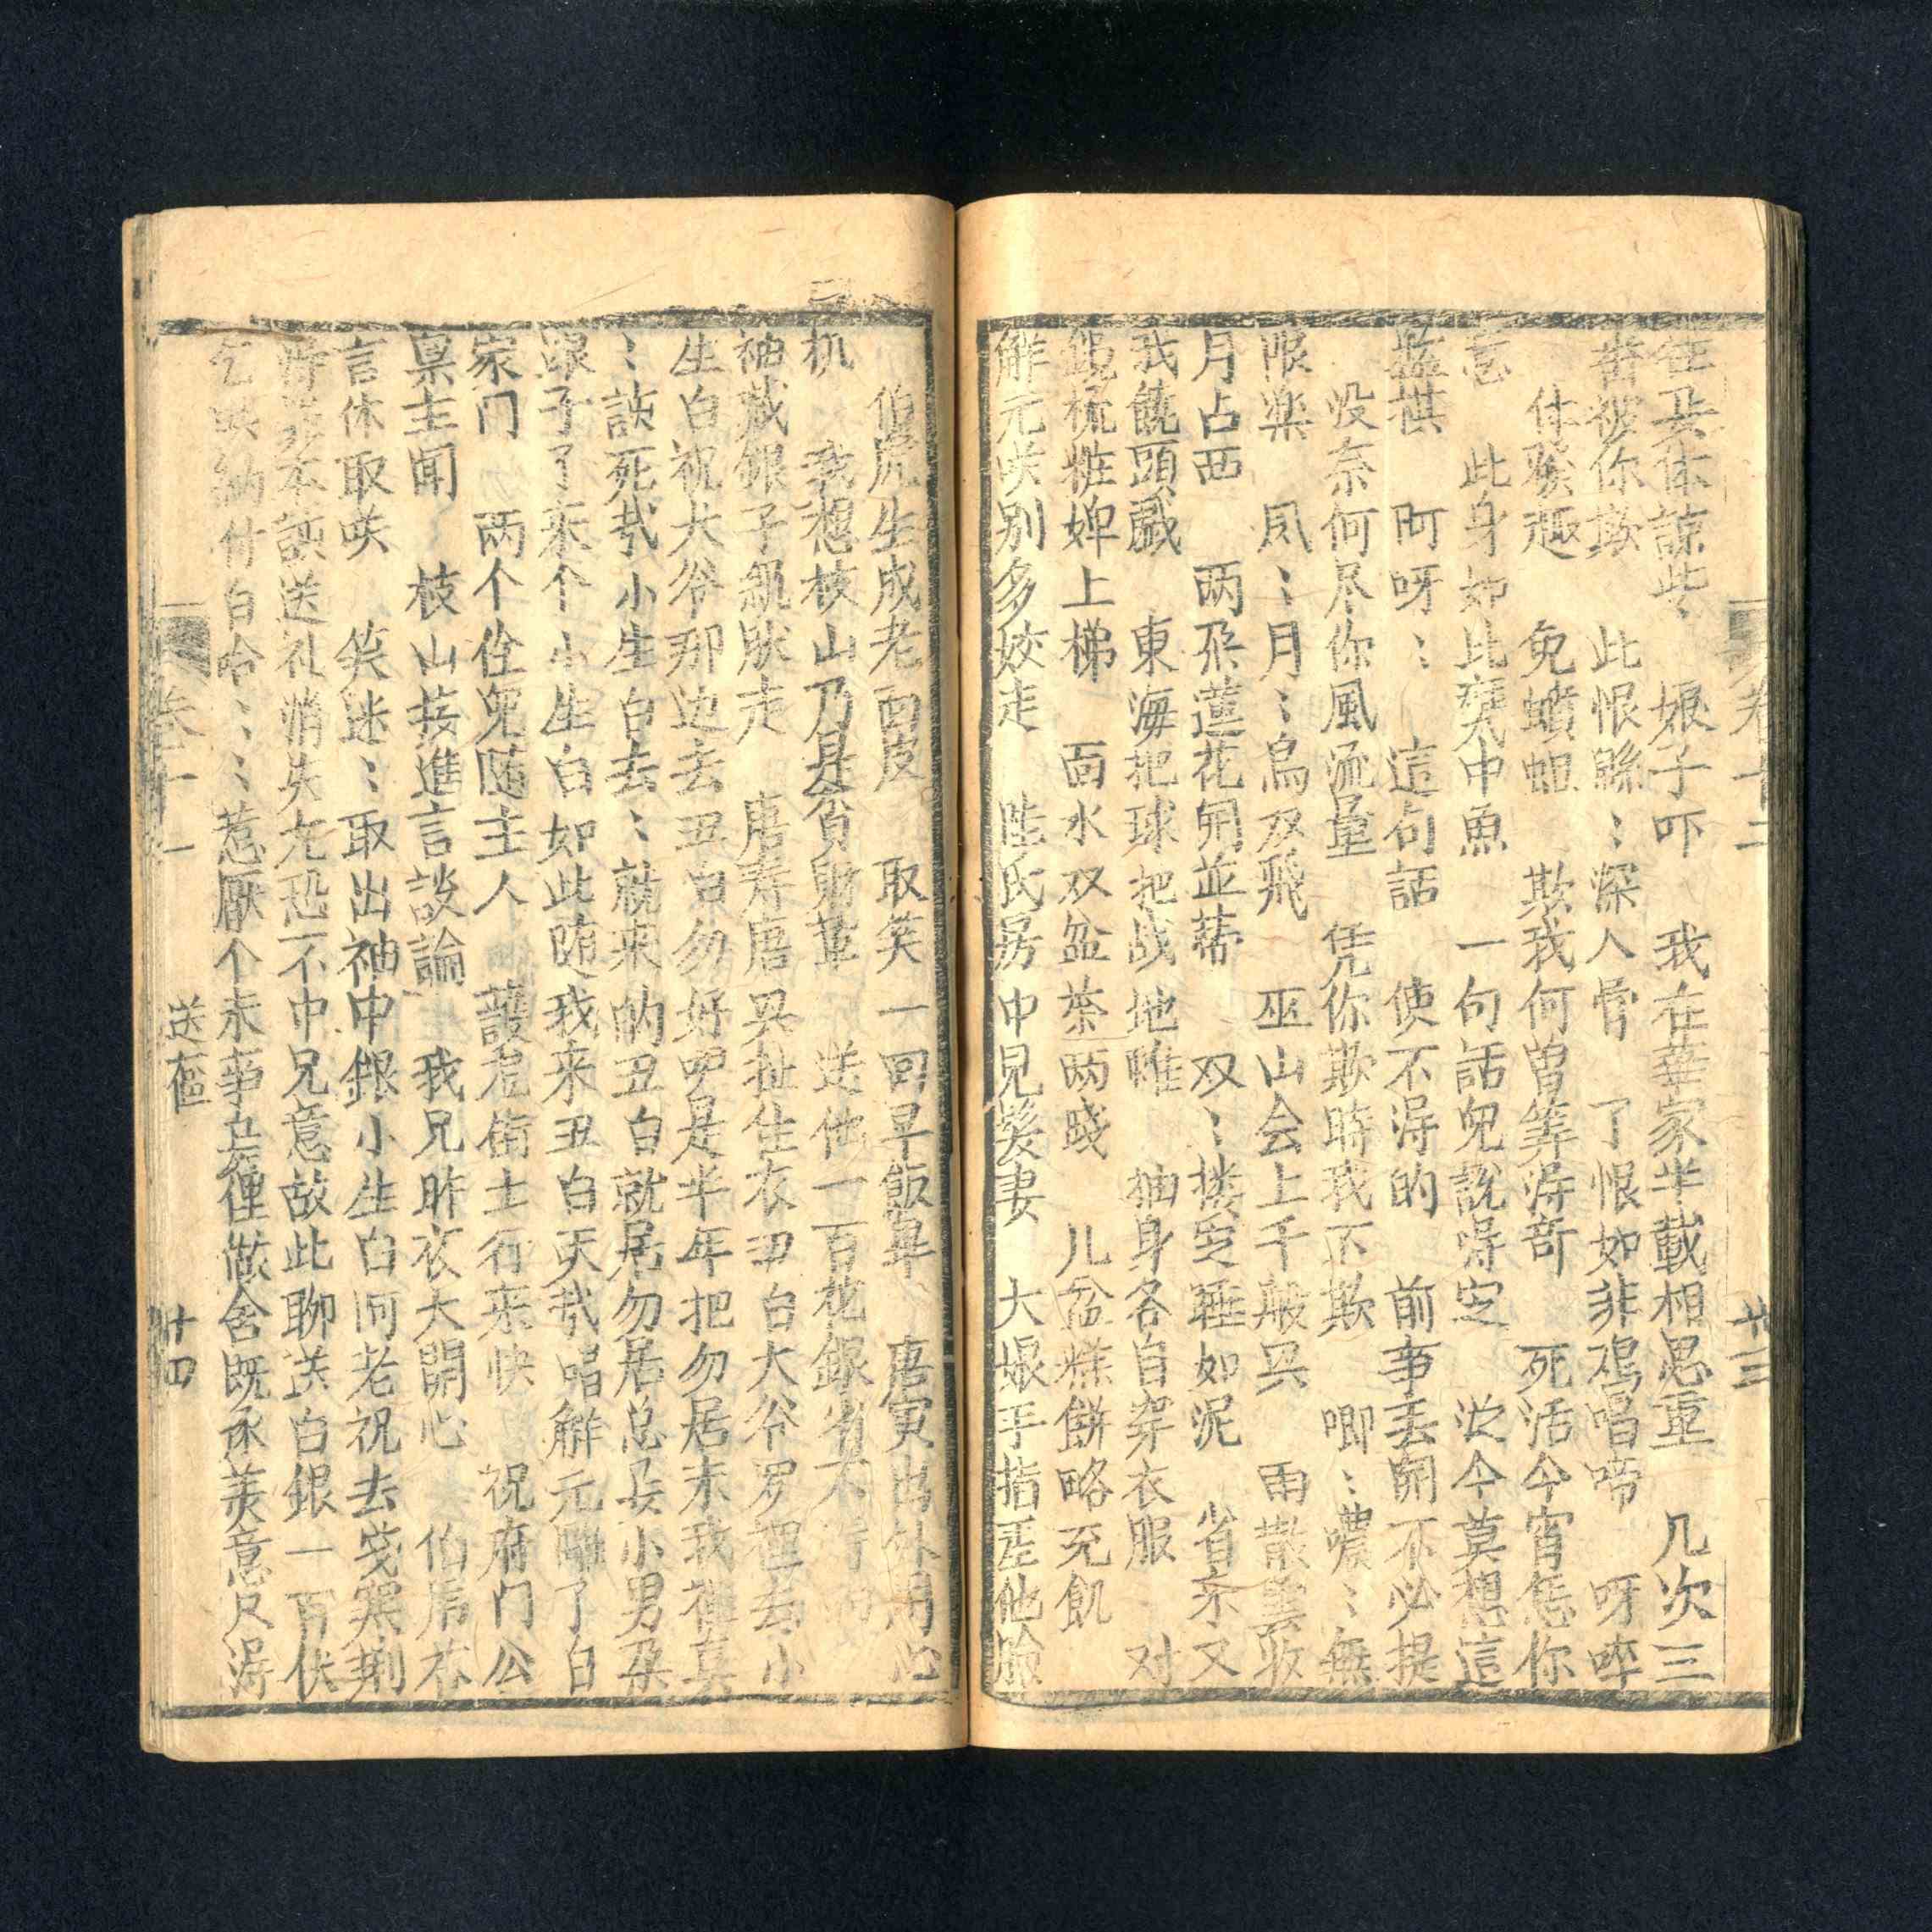 娘子吓　我在華家半載相思重　几次三
畨被你欺　此恨緜〻深入骨　了恨如非鴉唱啼　呀啐
什癸趣　免蟥蛔　欺我何曽筭淂奇　死活今宵恁你
意　此身如此甕中魚　一句話兒説淂定　従今莫想這
盤棋　阿呀〻　這句話　使不淂的　前事丢開不必提
没奈何尽你風流量　凭你欺時我不欺　唧〻噥〻無
限楽　凤〻月〻鳥双飛　巫山会上千般巽　雨散雲收
月占西　两朶蓮花開並蒂　双〻摟定睡如泥　省亲又
我饒頭戯　東海把球把战地帷　抽身各自穿衣服　对
鏡梳粧婢上梯　面水双盆茶两盞　儿盆糕餅略充飢
觧元咲别多姣走　陸氏房中見髮妻　大娘手指羞他臉
卷十二
廿三
伯虎生成老面皮　取笑一回早飯畢　唐寅出外用心
机　我想枝山乃是貪財輩　送他一百花銀
袖藏銀子就走　唐寿唐興扯生衣丑白大爷罗裡去小
生白祝大爷那边去丑白勿好吓是半年把勿居来我裡真
〻談死哉小生白去〻就来的丑白就居勿居总要小男朶
跟子了来个小生白如此随我来丑白灭哉唱觧元聴了白
家门　两个佺兒随主人　護龙街士行来快　祝府门公
禀主聞　枝山接進言談論　我兄昨夜大開心　伯虎
言休取咲　笑迷〻取出袖中銀小生白阿老祝去歲寒荆
本該送礼悄失尤恐不中兄意故此聊送白銀一百伏
乞咲納付白合〻〻惹厭个末事只管做舍既承美意尺淂
卷十一
送樞
廿四